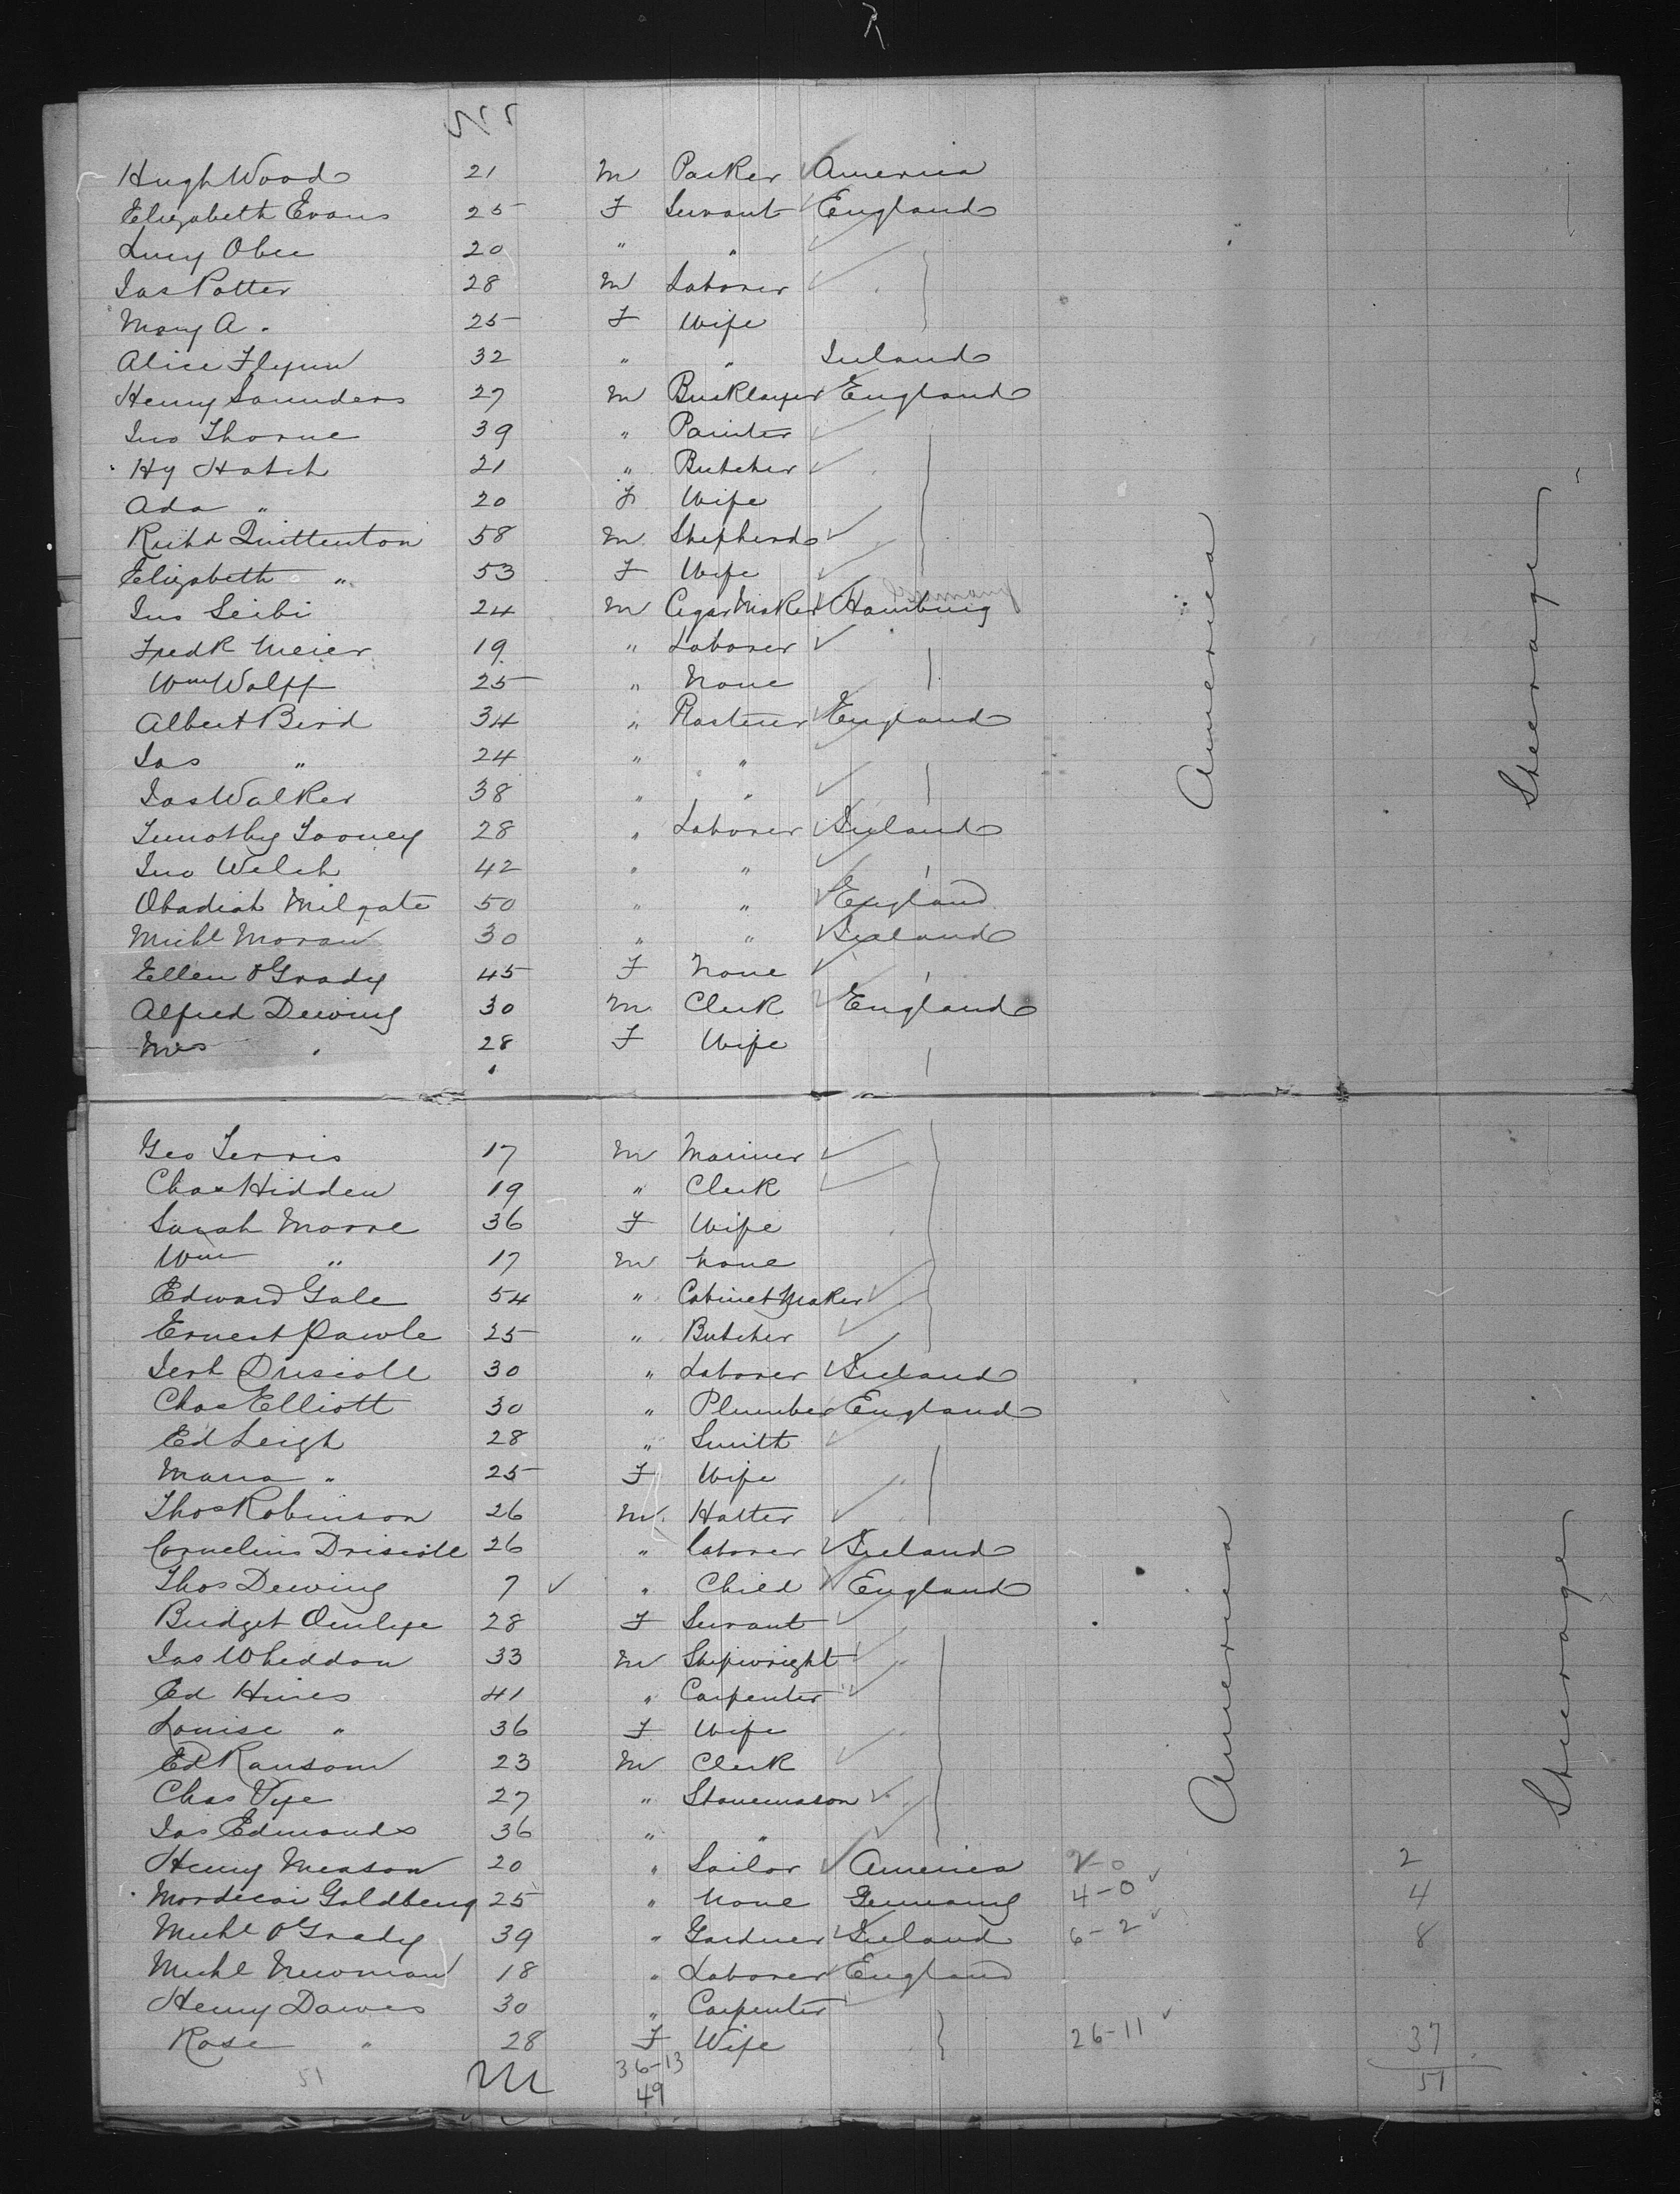 Hugh Wood 21 M Packer America
Elizabeth Evans 25 F Servant England
Lucy Obee 20 " "
Jas Potter 28 M Laborer
Mary A " 25 F Wife
Alice Flynn 32 " " Ireland
Henry Saunders 27 M Bricklayer England
Jno Thorne 39 " Painter
Hy Hatch 21 " Butcher
Ada " 20 F Wife
Richd Quittenton 58 M Shepherd
Elizabeth " 53 F Wife
Jno Seibi 24 M Cigar Maker Hamburg Germany
Fredk Meier 19 " Laborer
Wm Wolff 25 " None
Albert Bird 34 " Plasterer England
Jas " 24 " "
Jas Walker 38 " "
Timothy Tooney 28 " Laborer Ireland
Jno Welch 42 " "
Obadiah Milgate 50 " " England
Michl Moran 30 " " Ireland
Ellen O'Grady 45 F None
Alfred Dewing 30 M Clerk England
Mrs " 28 F Wife
America
Steerage
Geo Ferris 17 M Mariner
Chas Hidden 19 " Clerk
Sarah Moore 36 F Wife
Wm " 17 M None
Edward Gale 54 " Cabinet Maker
Ernest Pawle 25 " Butcher
Jerh Driscoll 30 " Laborer Ireland
Chas Elliott 30 " Plumber England
Ed Leigh 28 " Smith
Maria " 25 F Wife
Thos Robinson 26 M Hatter
Cornelius Driscoll 26 " Laborer Ireland
Thos Dewing 7 " Child England
Bridget 28 F Servant
Jas Wheddon 33 M Shipwright
Ed Hines 41 " Carpenter
Louise " 36 F Wife
Ed Ransom 23 M Clerk
Chas Pye 27 " Stonemason
Jas Edmonds 36 " "
Henry Meason 20 " Sailor America 2-0 2
Mordecai Goldberg 25 " None Germany 4-0 4
Michl O'Grady 39 " Gardner Ireland 6-2 8
Michl Newman 18 " Laborer England
Henry Dawes 30 " Carpenter
Rose " 28 F Wife 26-11 37
51 36-13 51
49
America
Steerage